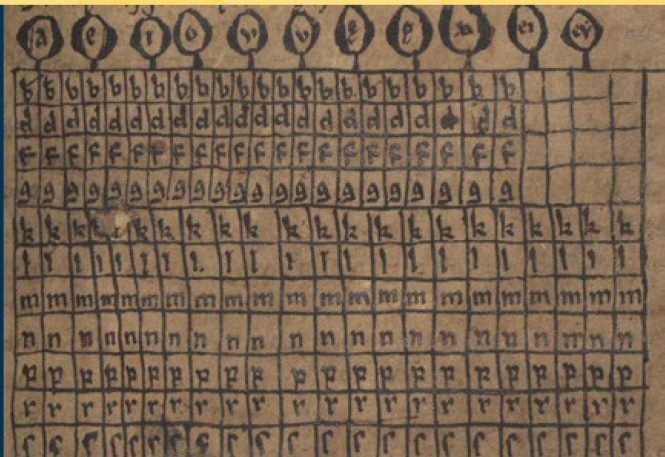 a e ı o v v ę ę au eı eẏ
b b b b b b b b b b b b b b b b b b b b b b
d d d d d d d d d d d d d d d d d d d d d d
f f f f f f f f f f f f f f f f f f f f f f
g g g g g g g g g g g g g g g g g g g g g g
k k k k k k k k k k k k k k k k k k k k k k
l l l l l l l l l l l l l l l l l l l l l l
m m m m m m m m m m m m m m m m m m m m m m
n n n n n n n n n n n n n n n n n n n n n n
p p p p p p p p p p p p p p p p p p p p p p
r r r r r r r r r r r r r r r r r r r r r r
ſ ſ ſ ſ ſ ſ ſ ſ ſ ſ ſ ſ ſ ſ ſ ſ ſ ſ ſ ſ ſ ſ